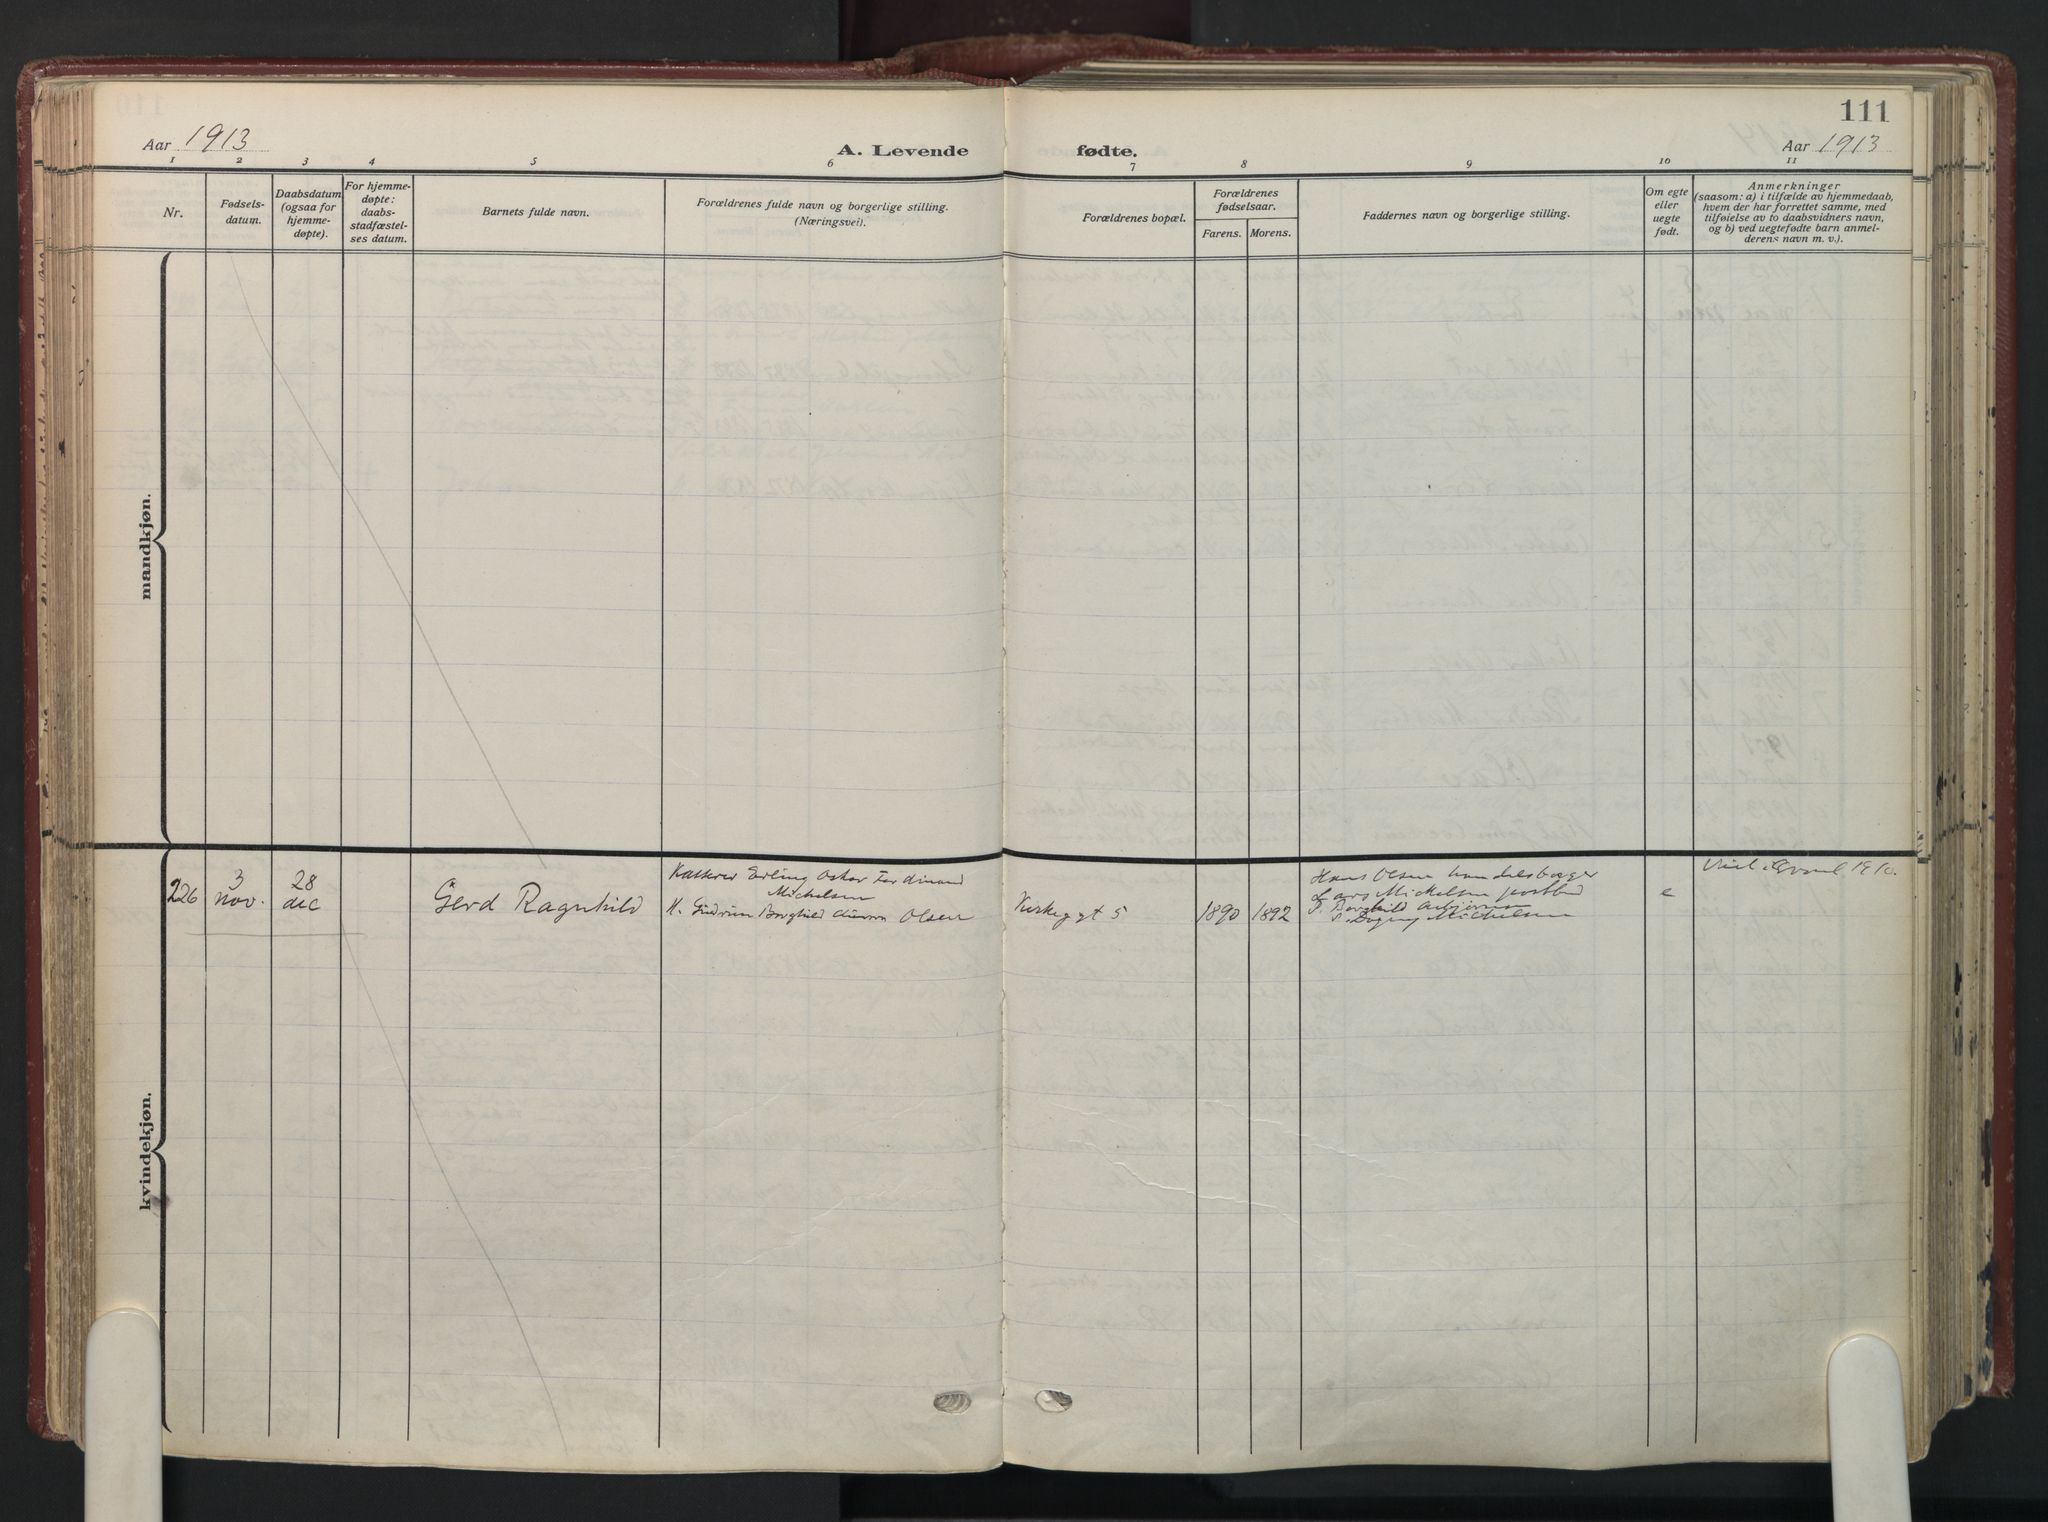 111
Aar 1913
A. Levende fødte.
Aar 1913
1 2 3 4 5 6 7 8 9 10 11
Nr.
Fødsels-
datum.
Daabsdatum
(ogsaa for
hjemme-
døpte).
For hjemme-
døpte:
daabs-
stadfæstel-
ses datum.
Barnets fulde navn.
Forældrenes fulde navn og borgerlige stilling.
(Næringsvei).
Forældrenes bopæl.
Forældrenes
fødselsaar.
Farens. Morens.
Faddernes navn og borgerlige stilling.
Om egte
eller
uegte
født.
Anmerkninger
(saasom: a) i tilfælde av hjemmedaab,
hvem der har forrettet samme, med
tilføielse av to daabsvidners navn,
og b) ved uegtefødte barn anmel-
derens navn m. v.).
mandkjøn.
kvindekjøn.
226
3
nov.
28
dec
Gerd Ragnhild
Erling Oskar Ferdinand
Michelsen
H. Gudrun Borghild Olsen
Kirkegt 5
1890
1892
Hans Olsen handelsborger
Lars Mickelsen postbud
Borghild
Dagny Michelsen
e